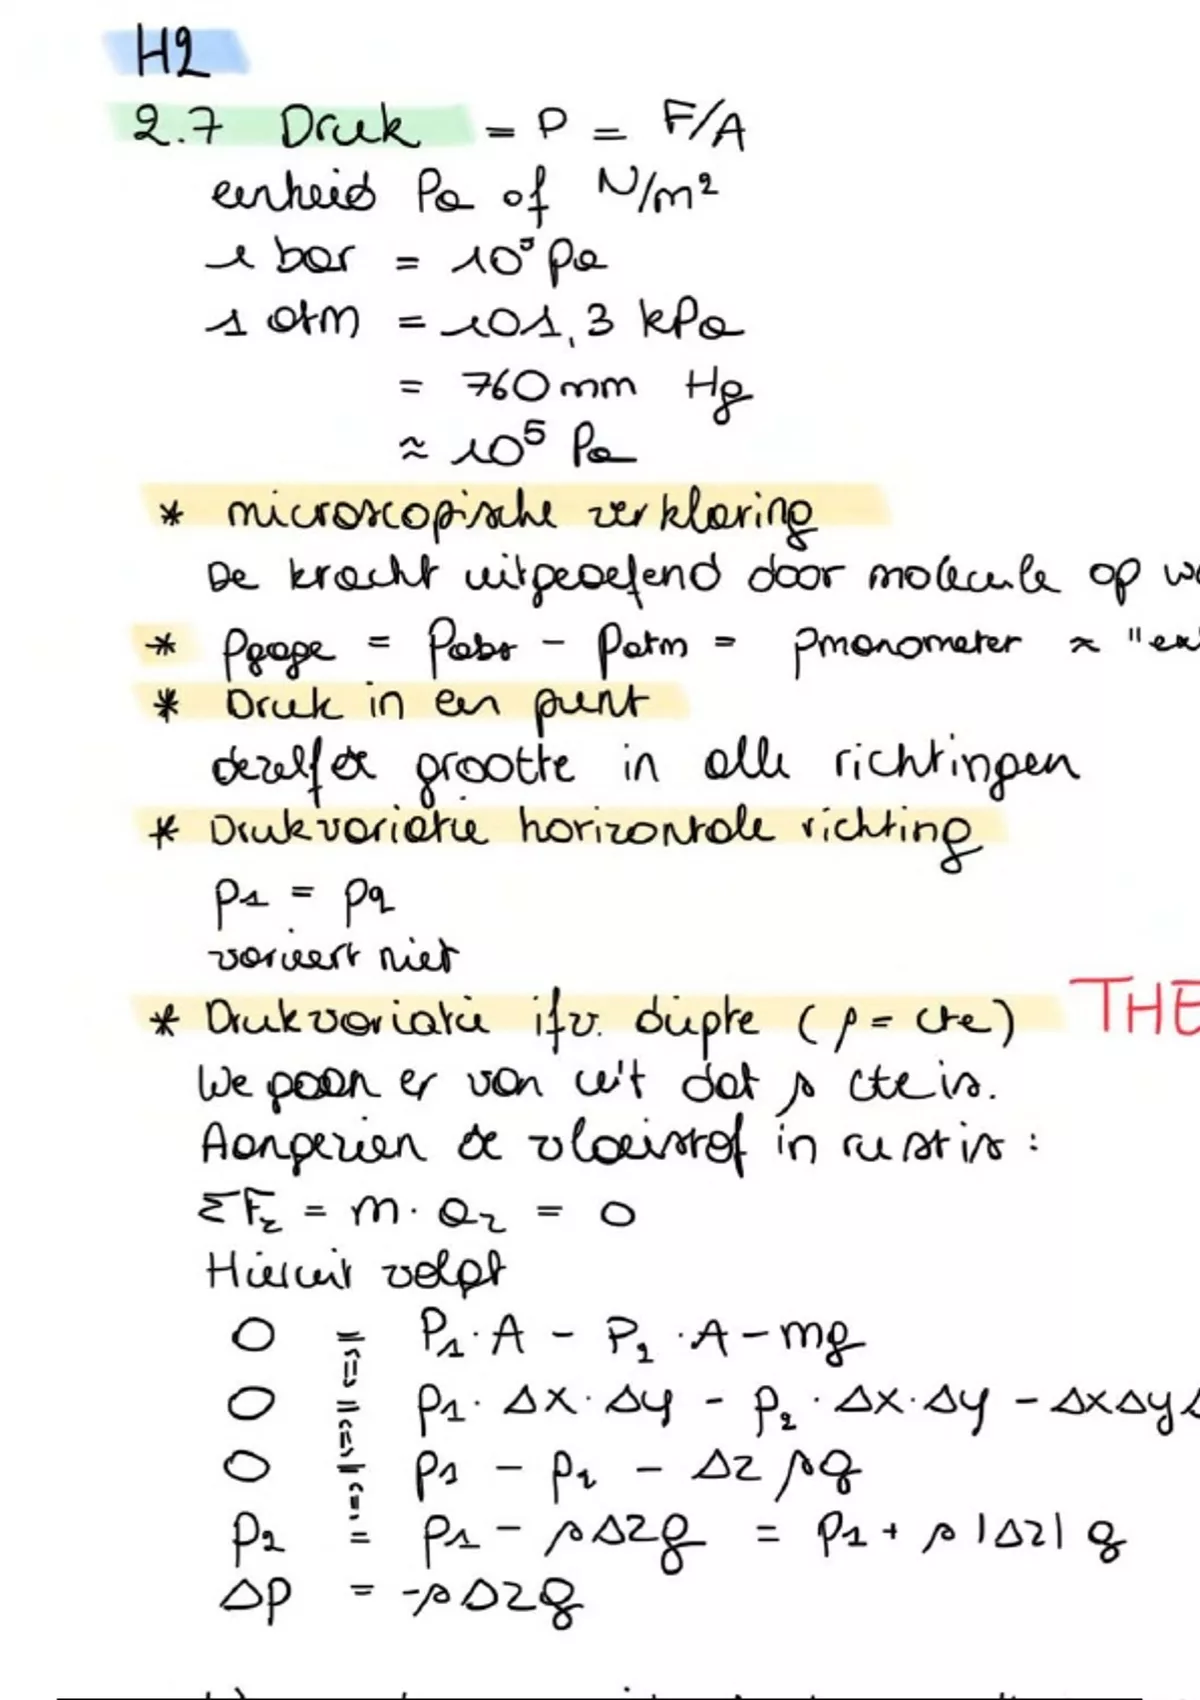 H2
2.7 Druk = P = F/A
eenheid Pa of N/m²
1 bar = 10⁵ Pa
1 atm = 101,3 kPa
= 760 mm Hg
≈ 10⁵ Pa
* microscopische verklaring
De kracht uitgeoefend door molecule op
* Pgage = Pabs - Patm = Pmanometer ≈
* Druk in een punt
dezelfde grootte in alle richtingen
* Drukvariatie horizontale richting
p1 = p2
varieert niet
* Drukvariatie ifv. diepte (ρ = cte)
THE
We gaan er van uit dat ρ cte is.
Aangezien de vloeistof in rust is :
ΣFz = m · az = 0
Hieruit volgt
0 = P1 · A - P2 · A - mg
⇔
0 = p1 · Δx · Δy - p2 · Δx · Δy - ΔxΔy
⇔
0 = p1 - p2 - Δz ρg
⇔
p2 = p1 - ρΔzg = p1 + ρ|Δz| g
Δp = -ρΔzg